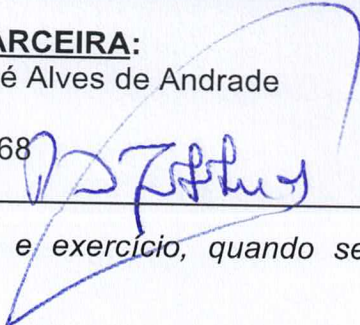 ARCEIRA:
é Alves de Andrade
68
e exercício, quando se